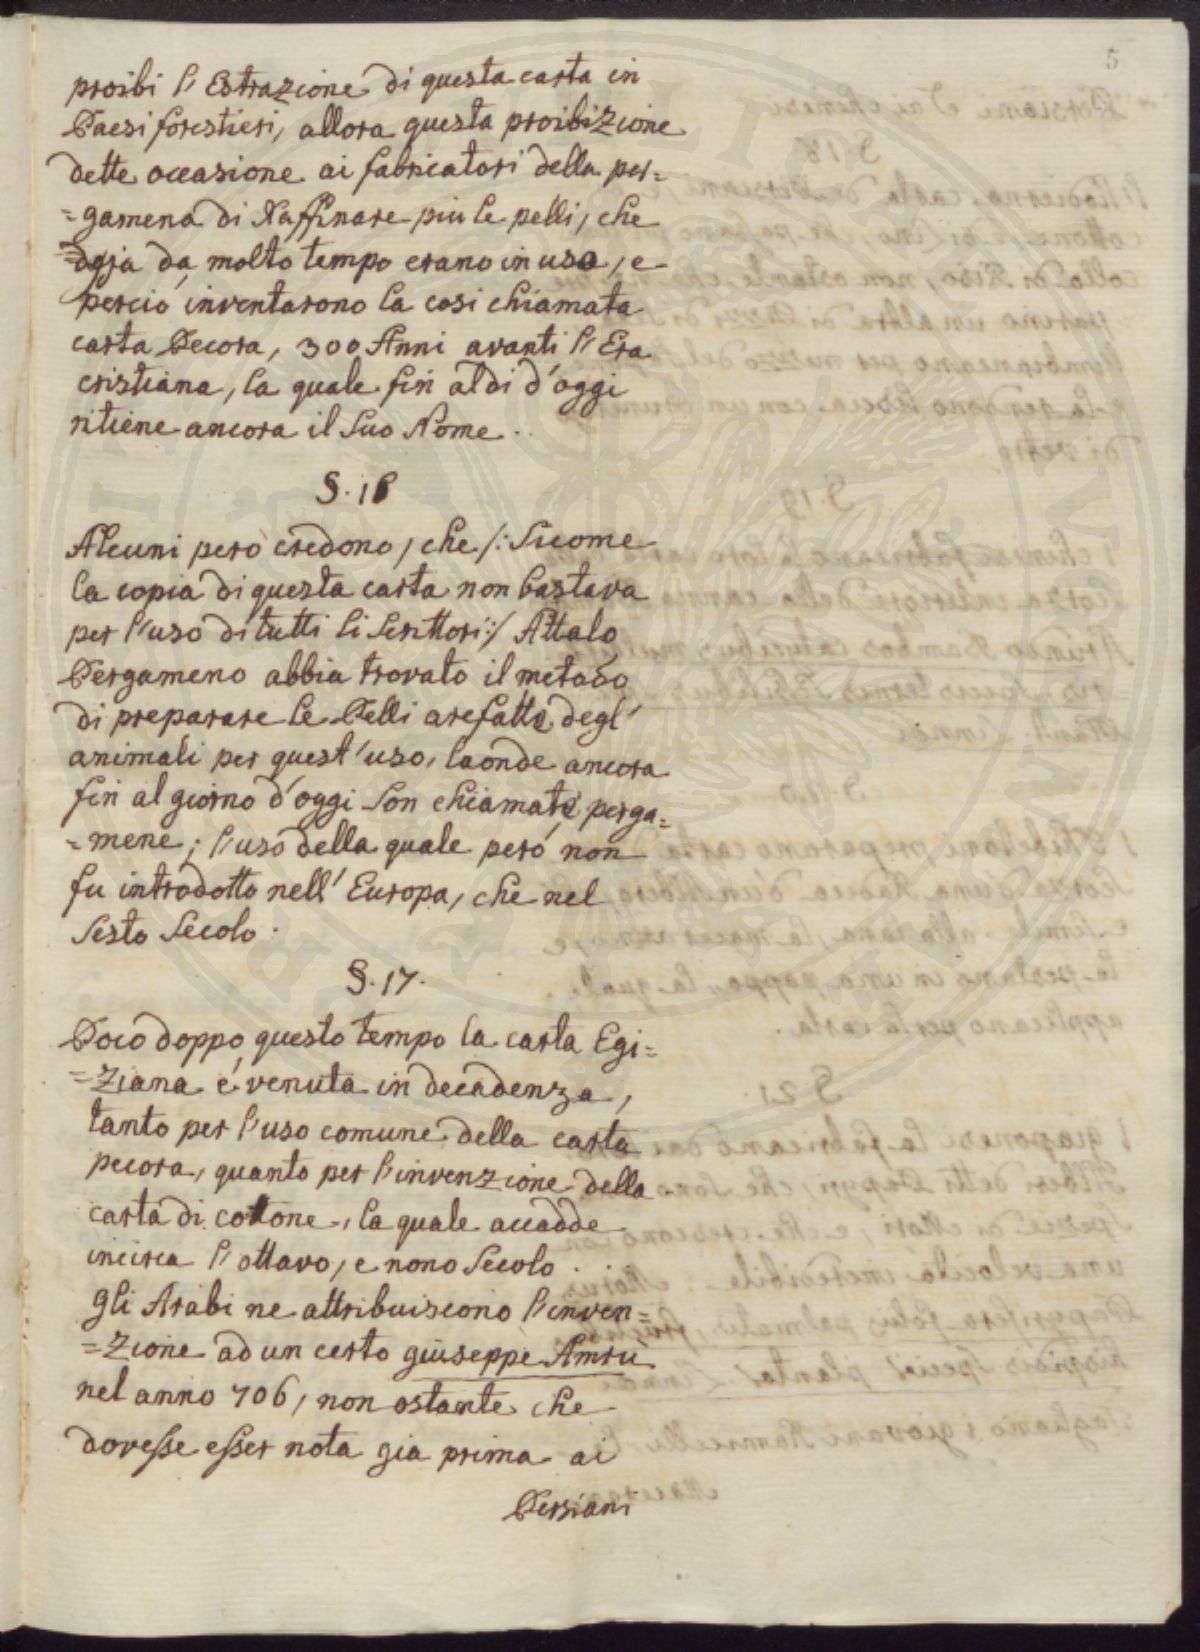 5
proibi l'Estrazione di questa carta in
Paesi forestieri, allora questa proibizione
dette occasione ai fabricatori della per=
=gamena di Raffinare piu le pelli, che
degia da molto tempo erano in uso, e
perciò inventarono la cosi chiamata
carta Pecora, 300 Anni avanti l'Era
cristiana, la quale fin al di d'oggi
ritiene ancora il Suo Nome.
§. 16
Alcuni però credono, che /: Siccome
la copia di questa carta non bastava
per l'uso di tutti li Scrittori :/ Attalo
Pergameno abbia trovato il metodo
di preparare le Pelli arefatte degl'
animali per quest'uso, laonde ancora
fin al giorno d'oggi Son chiamate perga=
=mene; l'uso della quale però non
fu introdotto nell'Europa, che nel
Sesto Secolo.
§. 17.
Poco doppo questo tempo la carta Egi=
=Ziana é venuta in decadenza,
tanto per l'uso comune della carta
pecora, quanto per l'invenzione della
carta di cottone, la quale accadde
incirca l'ottavo, e nono Secolo.
gli Arabi ne attribuiscono l'inven=
=Zione ad un certo giuseppe Amru
nel anno 706, non ostante che
dovesse esser nota gia prima ai
Persiani